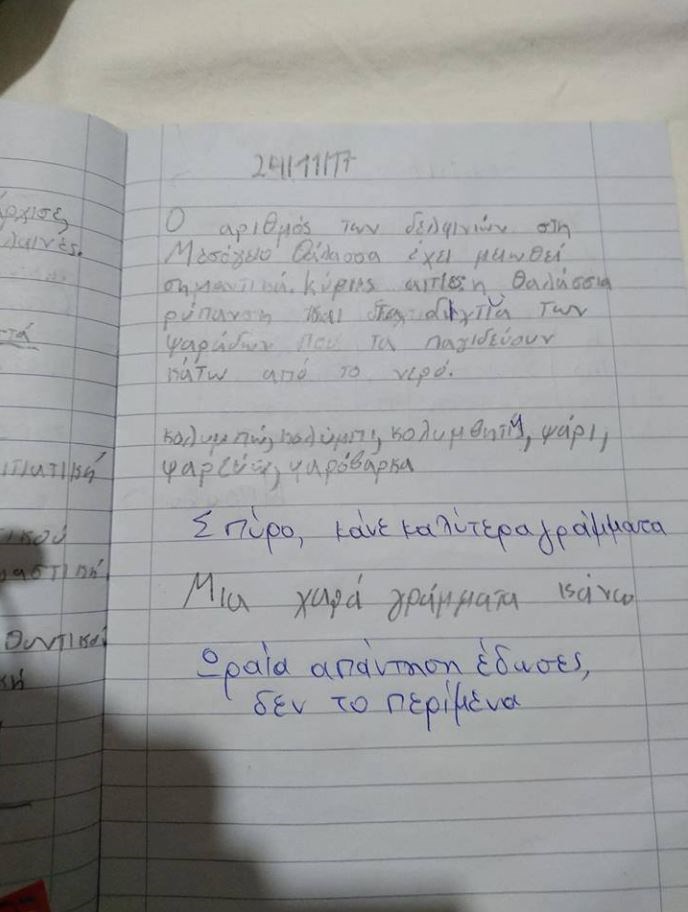 24/11/17
Ο αριθμός των δελφινιών στη
Μεσόγειο θάλασσα έχει μειωθεί
σημαντικά. Κύριες αιτίες η θαλάσσια
ρύπανση και δίχτυα των
ψαράδων που τα παγιδεύουν
κάτω από το νερό.
κολυμπώ, κολύμπι, κολυμβητή, ψάρι,
ψαρεύω, ψαρόβαρκα
Σπύρο, κάνε καλύτερα γράμματα
Μια χαρά γράμματα κάνω
Ωραία απάντηση έδωσες,
δεν το περίμενα